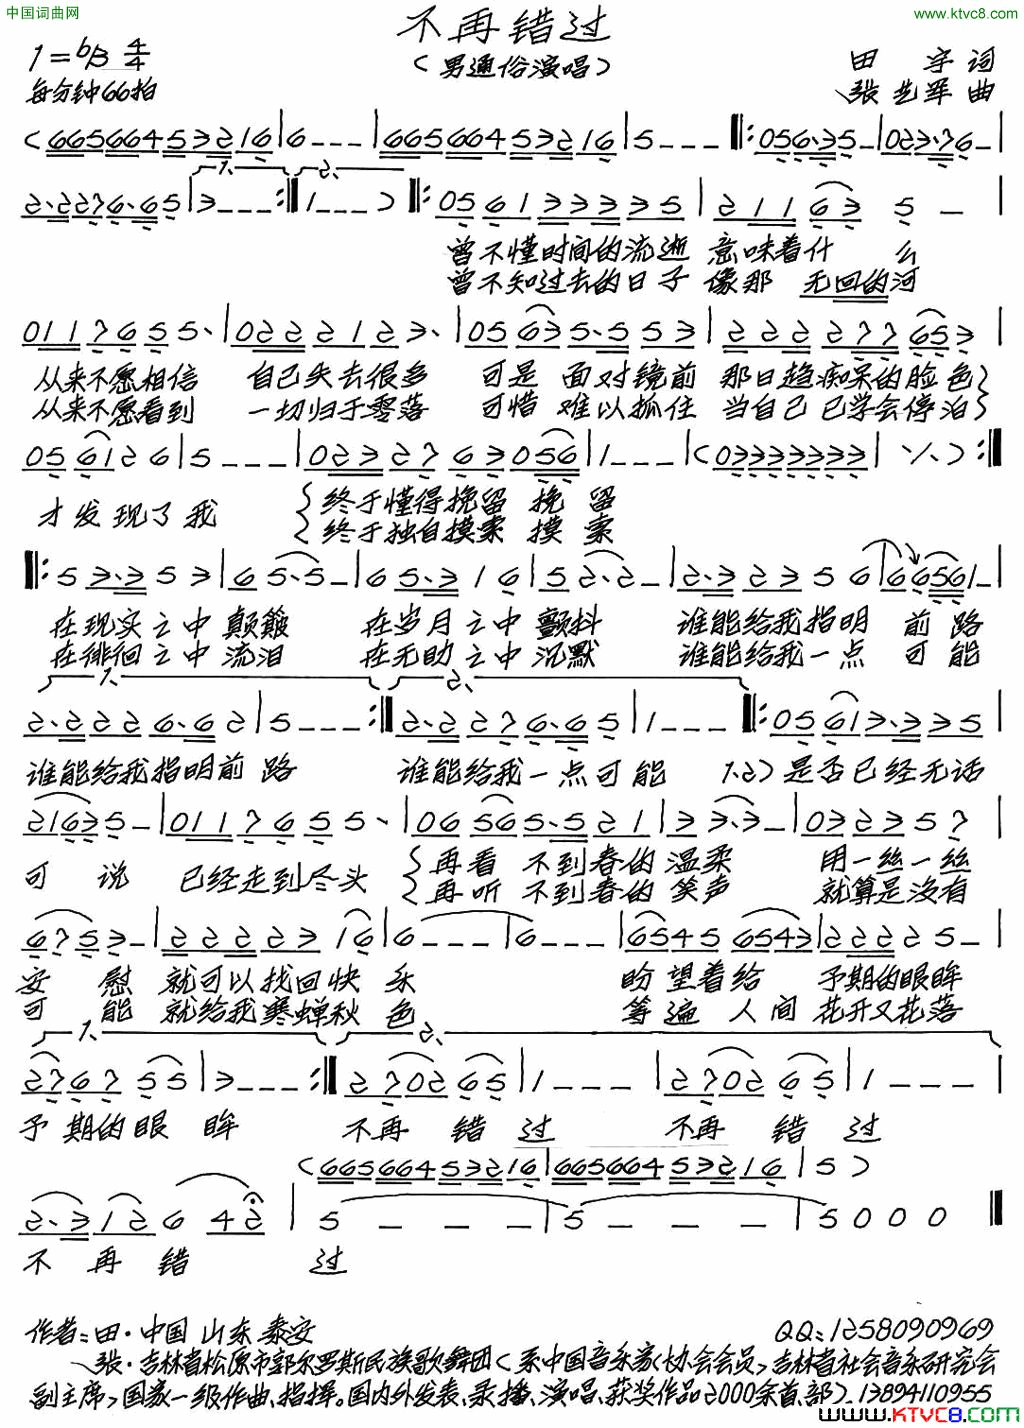 中国词曲网
www.ktvc8.com
不再错过
（男通俗演唱）
1=bB 4/4
每分钟66拍
田 宇 词
张艺军 曲
(66566453216|6---|66566453216|5---‖:056·35-|023·76-|
2·2276·65|3---:‖1---)‖:0561333335|21163 5-|
1、 2、
曾不懂时间的流逝 意味着什 么
曾不知过去的日子 像那 无回的河
0117655·|0222123·|05635·553|222277653|
从来不愿相信 自己失去很多 可是 面对镜前 那日趋痴呆的脸色
从来不愿看到 一切归于零落 可惜 难以抓住 当自己 已学会停泊
056126|5---|023276 3056|1---|(03333333|･/･):‖
才发现了我
终于懂得挽留 挽 留
终于独自摸索 摸 索
‖:53·353|65·5-|65·316|52·2-|2·32356|66561-|
在现实之中颠簸 在岁月之中颤抖 谁能给我指明 前 路
在徘徊之中流泪 在无助之中沉默 谁能给我一点 可 能
1、 2、
2·2226·62|5---:‖2·2276·65|1---‖:05613·335|
谁能给我指明前 路 谁能给我一点可能 1.2）是否已经无话
21635-|0117655·|06565·521|33·3-|032357|
可 说 已经走到尽头 再看 不到春的温柔 用一丝一丝
再听 不到春的笑声 就算是没有
6753-|22223 16|6---|6---|65456543|22225-|
安 慰 就可以找回快 乐 盼望着给 予期的眼眸
可 能 就给我寒蝉秋 色 等遍 人间 花开又花落
1、 2、
276755|3---:‖270265|1---|270265|1---|
予期的眼 眸 不再 错 过 不再 错 过
(66566453216|66566453216|5)
2·312642|5---|5---|5000‖
不 再 错 过
作者：田·中国 山东 泰安
QQ：1258090969
张·吉林省松原市郭尔罗斯民族歌舞团〈系中国音乐家协会会员〉吉林省社会音乐研究会
副主席〉国家一级作曲、指挥。国内外发表、录播、演唱、获奖作品2000余首、部）、13894110955
www.KTVC8.com